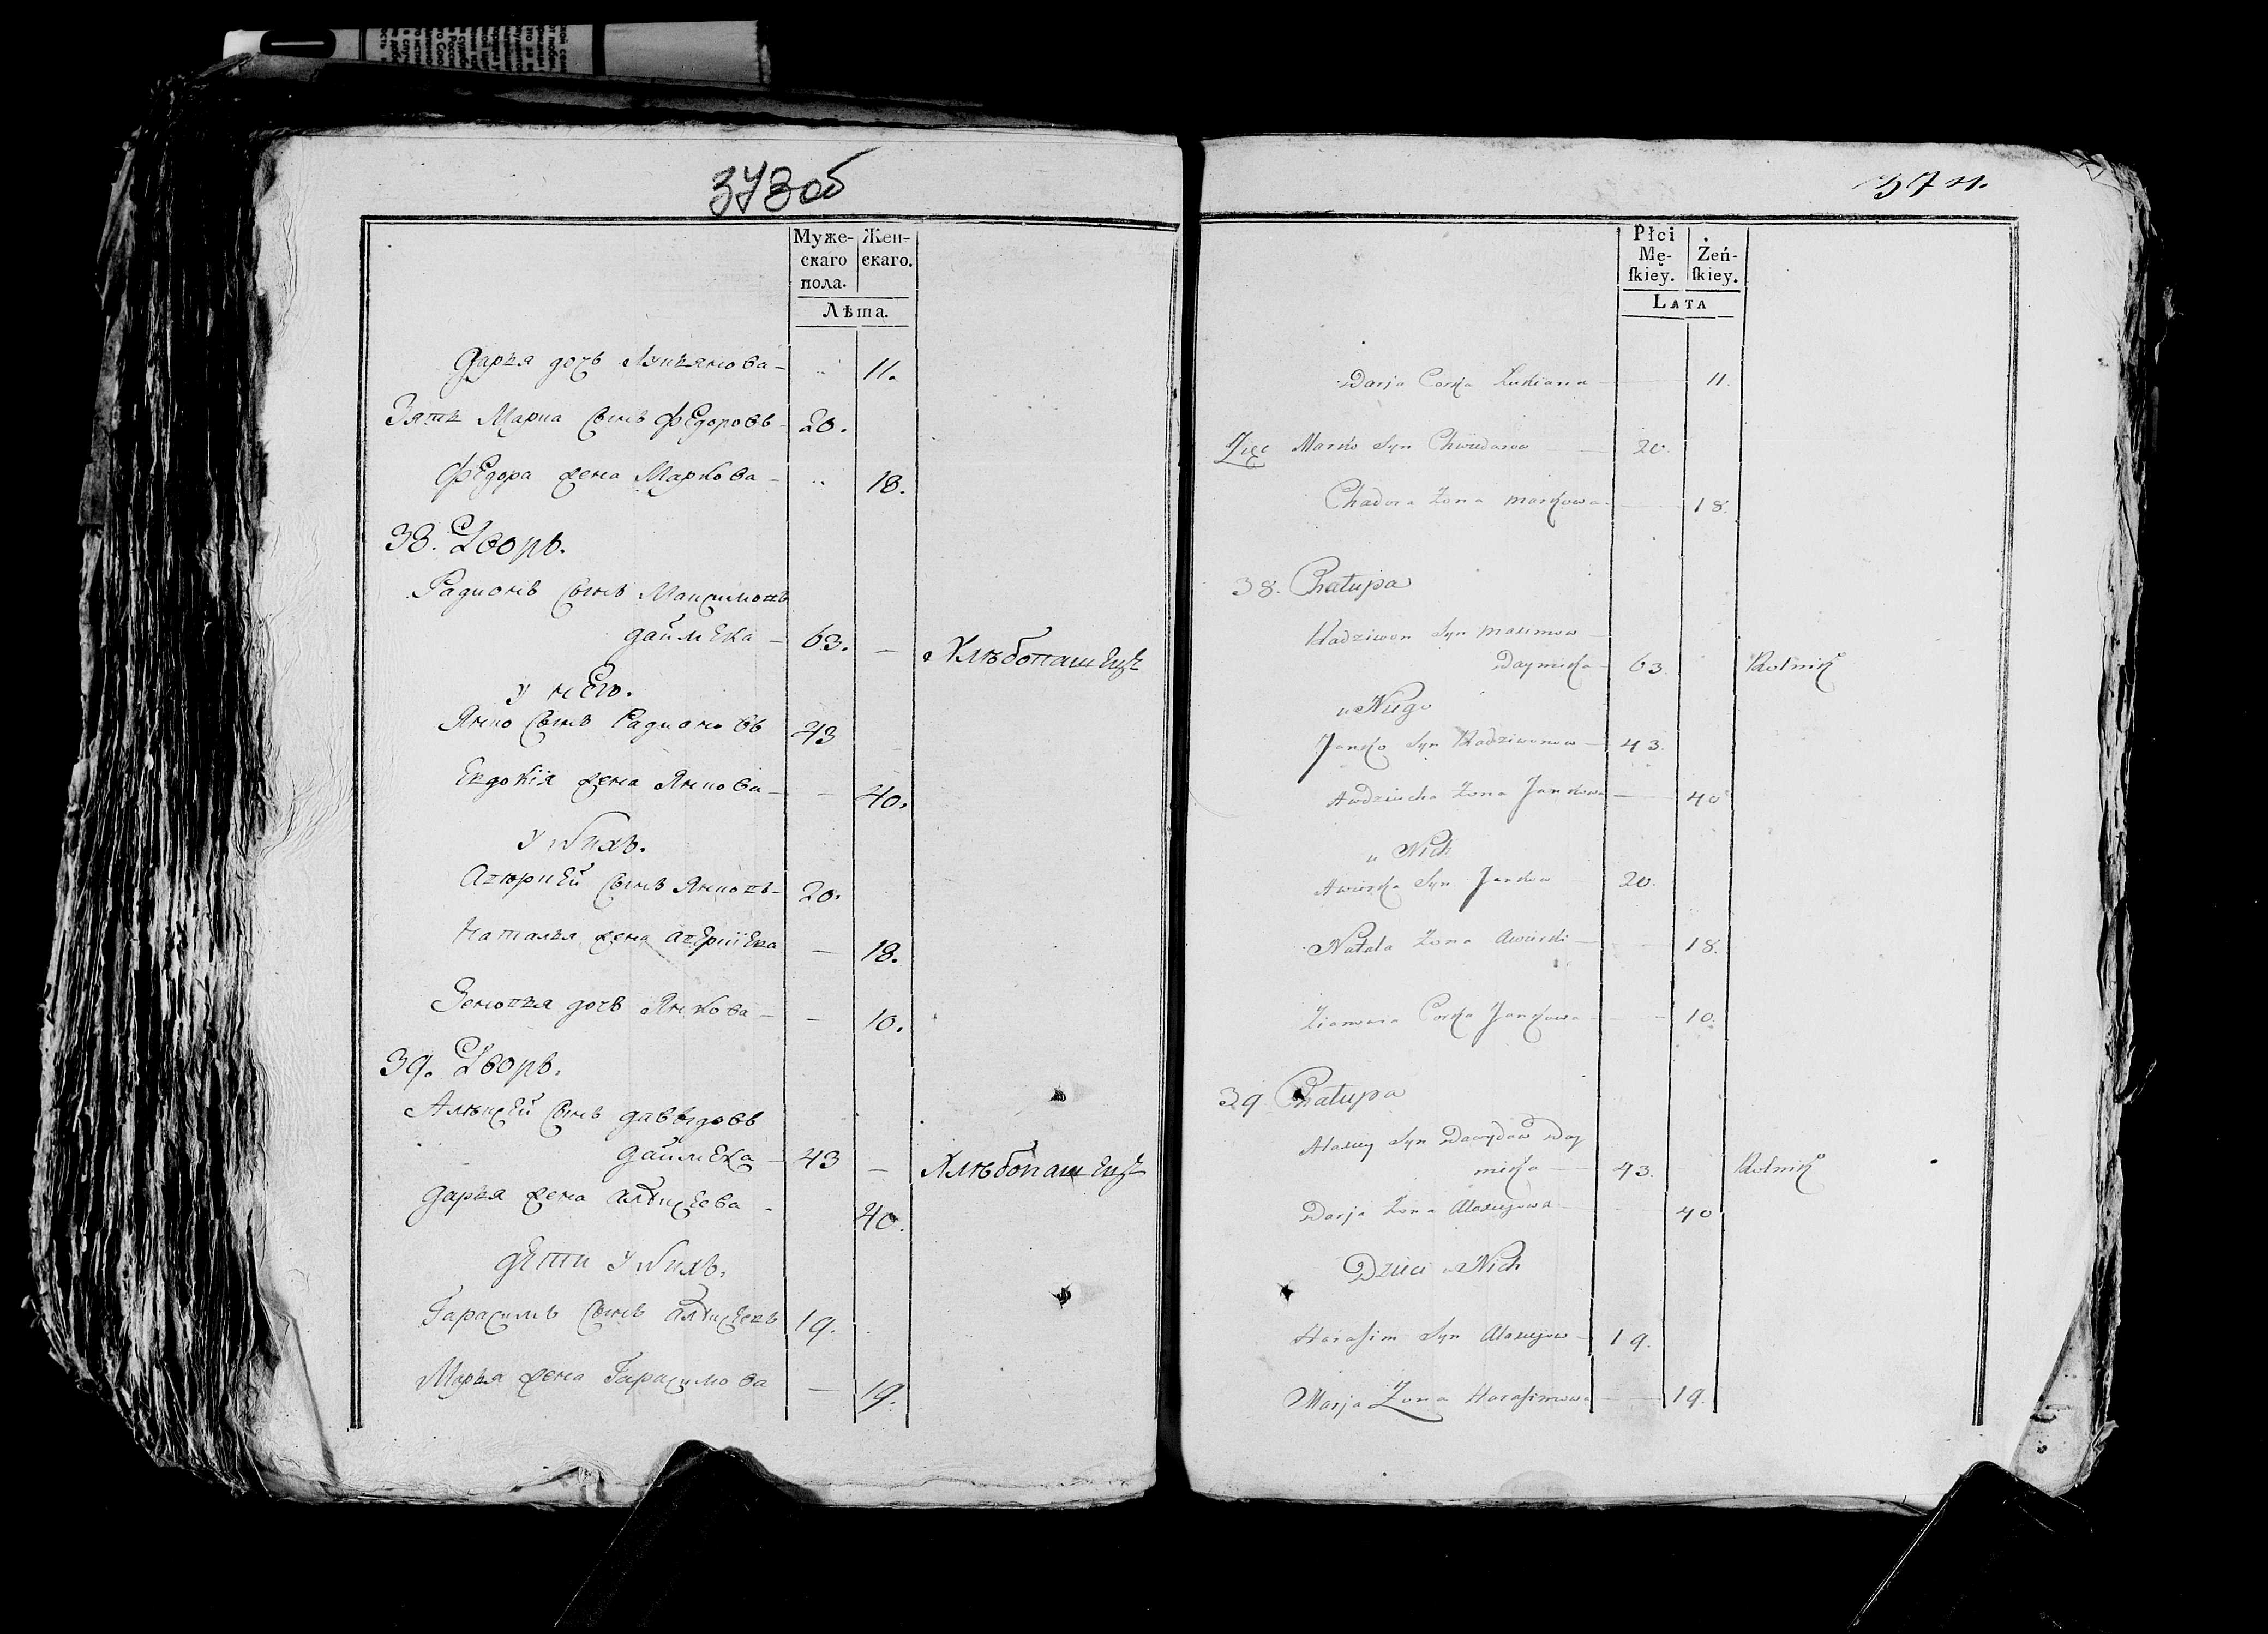 373 об
Муже-
скаго
пола.
Жен-
скаго.
Лѣта.
Дарья дочь Лукъянова - " 11.
Зять Марка сынъ Федоровъ - 20.
Федора жена Маркова - " 18.
38. Дворъ.
Радионъ сынъ Максимовъ
Даймека - 63. — Хлѣбопашецъ
у него.
Янко сынъ Радионовъ 43
Евдокія жена Янкова - — 40.
у нихъ.
сынъ Янковъ - 20.
Наталья жена — 18.
Зеновья дочь Янкова - — 10.
39. Дворъ.
Алѣксей сынъ Давыдовъ
Даймека - 43 — Хлѣбопашецъ
Дарья жена Алѣксеева - 40.
дети у нихъ.
Гарасимъ сынъ Алѣксеевъ 19.
Марья жена Гарасимова — 19.
374.
Płci
Mę-
ſkiey.
Żeń-
ſkiey.
Lata
Darja Corka Łukiana — 11.
Zięc Marko Syn Chwiedorow — 20.
Chadora Zona Markowa — 18.
38. Chałupa
Radziwon Syn Maximow —
Daymeka — 63. Rolnik
u Niego
Janko Syn Radziwonow — 43.
Awdziucha Zona Jankowa — 40
u Nich
Awierka Syn Jankow — 20.
Natala Zona Awierki — 18.
Zianwaia Corka Jankowa — 10.
39 Chałupa
Alaxiey Syn Dawydow Day
meka — 43. Rolnik
Darja Zona Alaxiejowa — 40
Dzieci u Nich
Harasim Syn Alaxiejow — 19.
Marja Zona Harasimowa — 19.